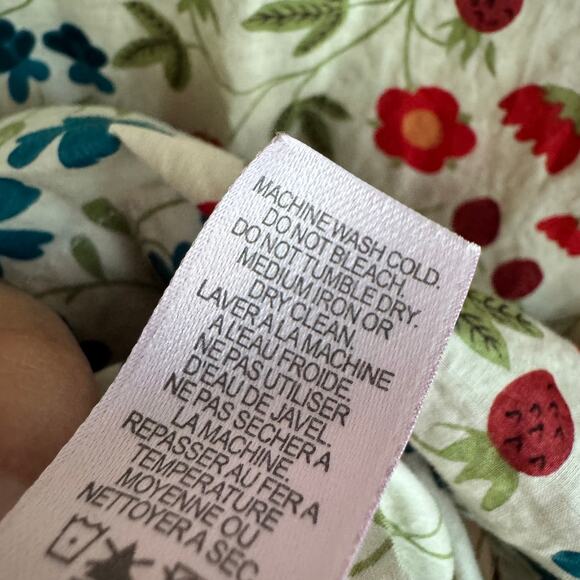 MACHINE WASH COLD.
DO NOT BLEACH.
DO NOT TUMBLE DRY.
MEDIUM IRON OR
DRY CLEAN.
LAVER A LA MACHINE
A L'EAU FROIDE.
NE PAS UTILISER
D'EAU DE JAVEL.
NE PAS SECHER A
LA MACHINE.
REPASSER AU FER A
TEMPERATURE
MOYENNE OU
NETTOYER A SEC